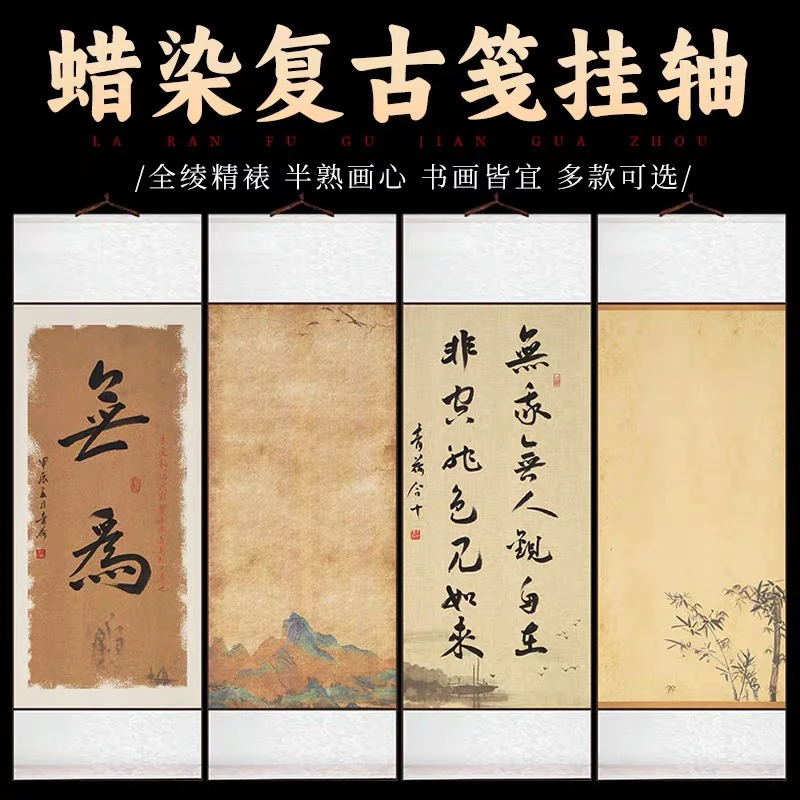 蜡染复古笺挂轴
LA RAN FU GU JIAN GUA ZHOU
/全绫精裱 半熟画心 书画皆宜 多款可选/
無為
甲辰五月青荷
無我無人觀自在
非空非色见如来
青荷合十